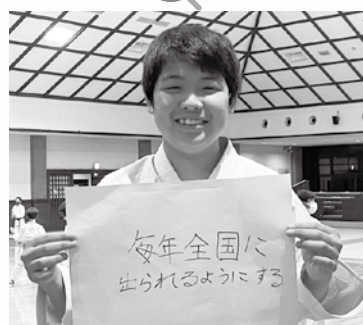 毎年全国に
出られるようにする